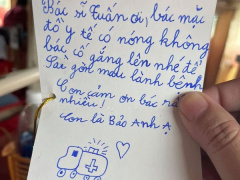 Bác sĩ Tuấn ơi, bác mặc
đồ y tế có nóng không
bác cố gắng lên nhé để
Sài gòn mau lành bệnh
Con cảm ơn bác rất
nhiều!
Con là Bảo Anh Ạ